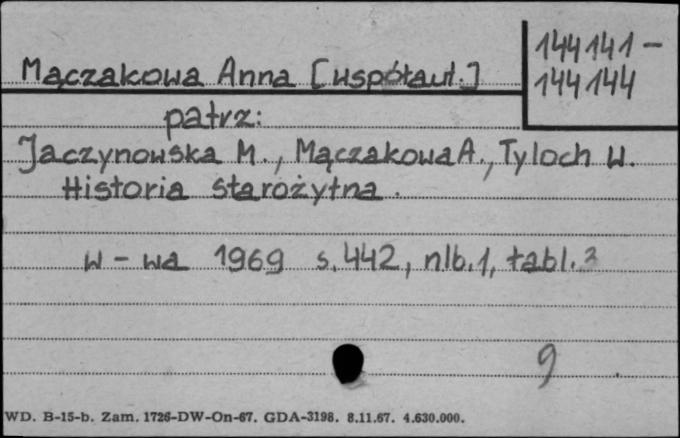 144141 -
144144
Mączakowa Anna [współaut.]
patrz:
Jaczynowska M., Mączakowa A., Tyloch W.
Historia starożytna.
W-wa 1969 s.442, nlb.1, tabl.3
9
WD. B-15-b. Zam. 1726-DW-On-67. GDA-3198. 8.11.67. 4.630.000.